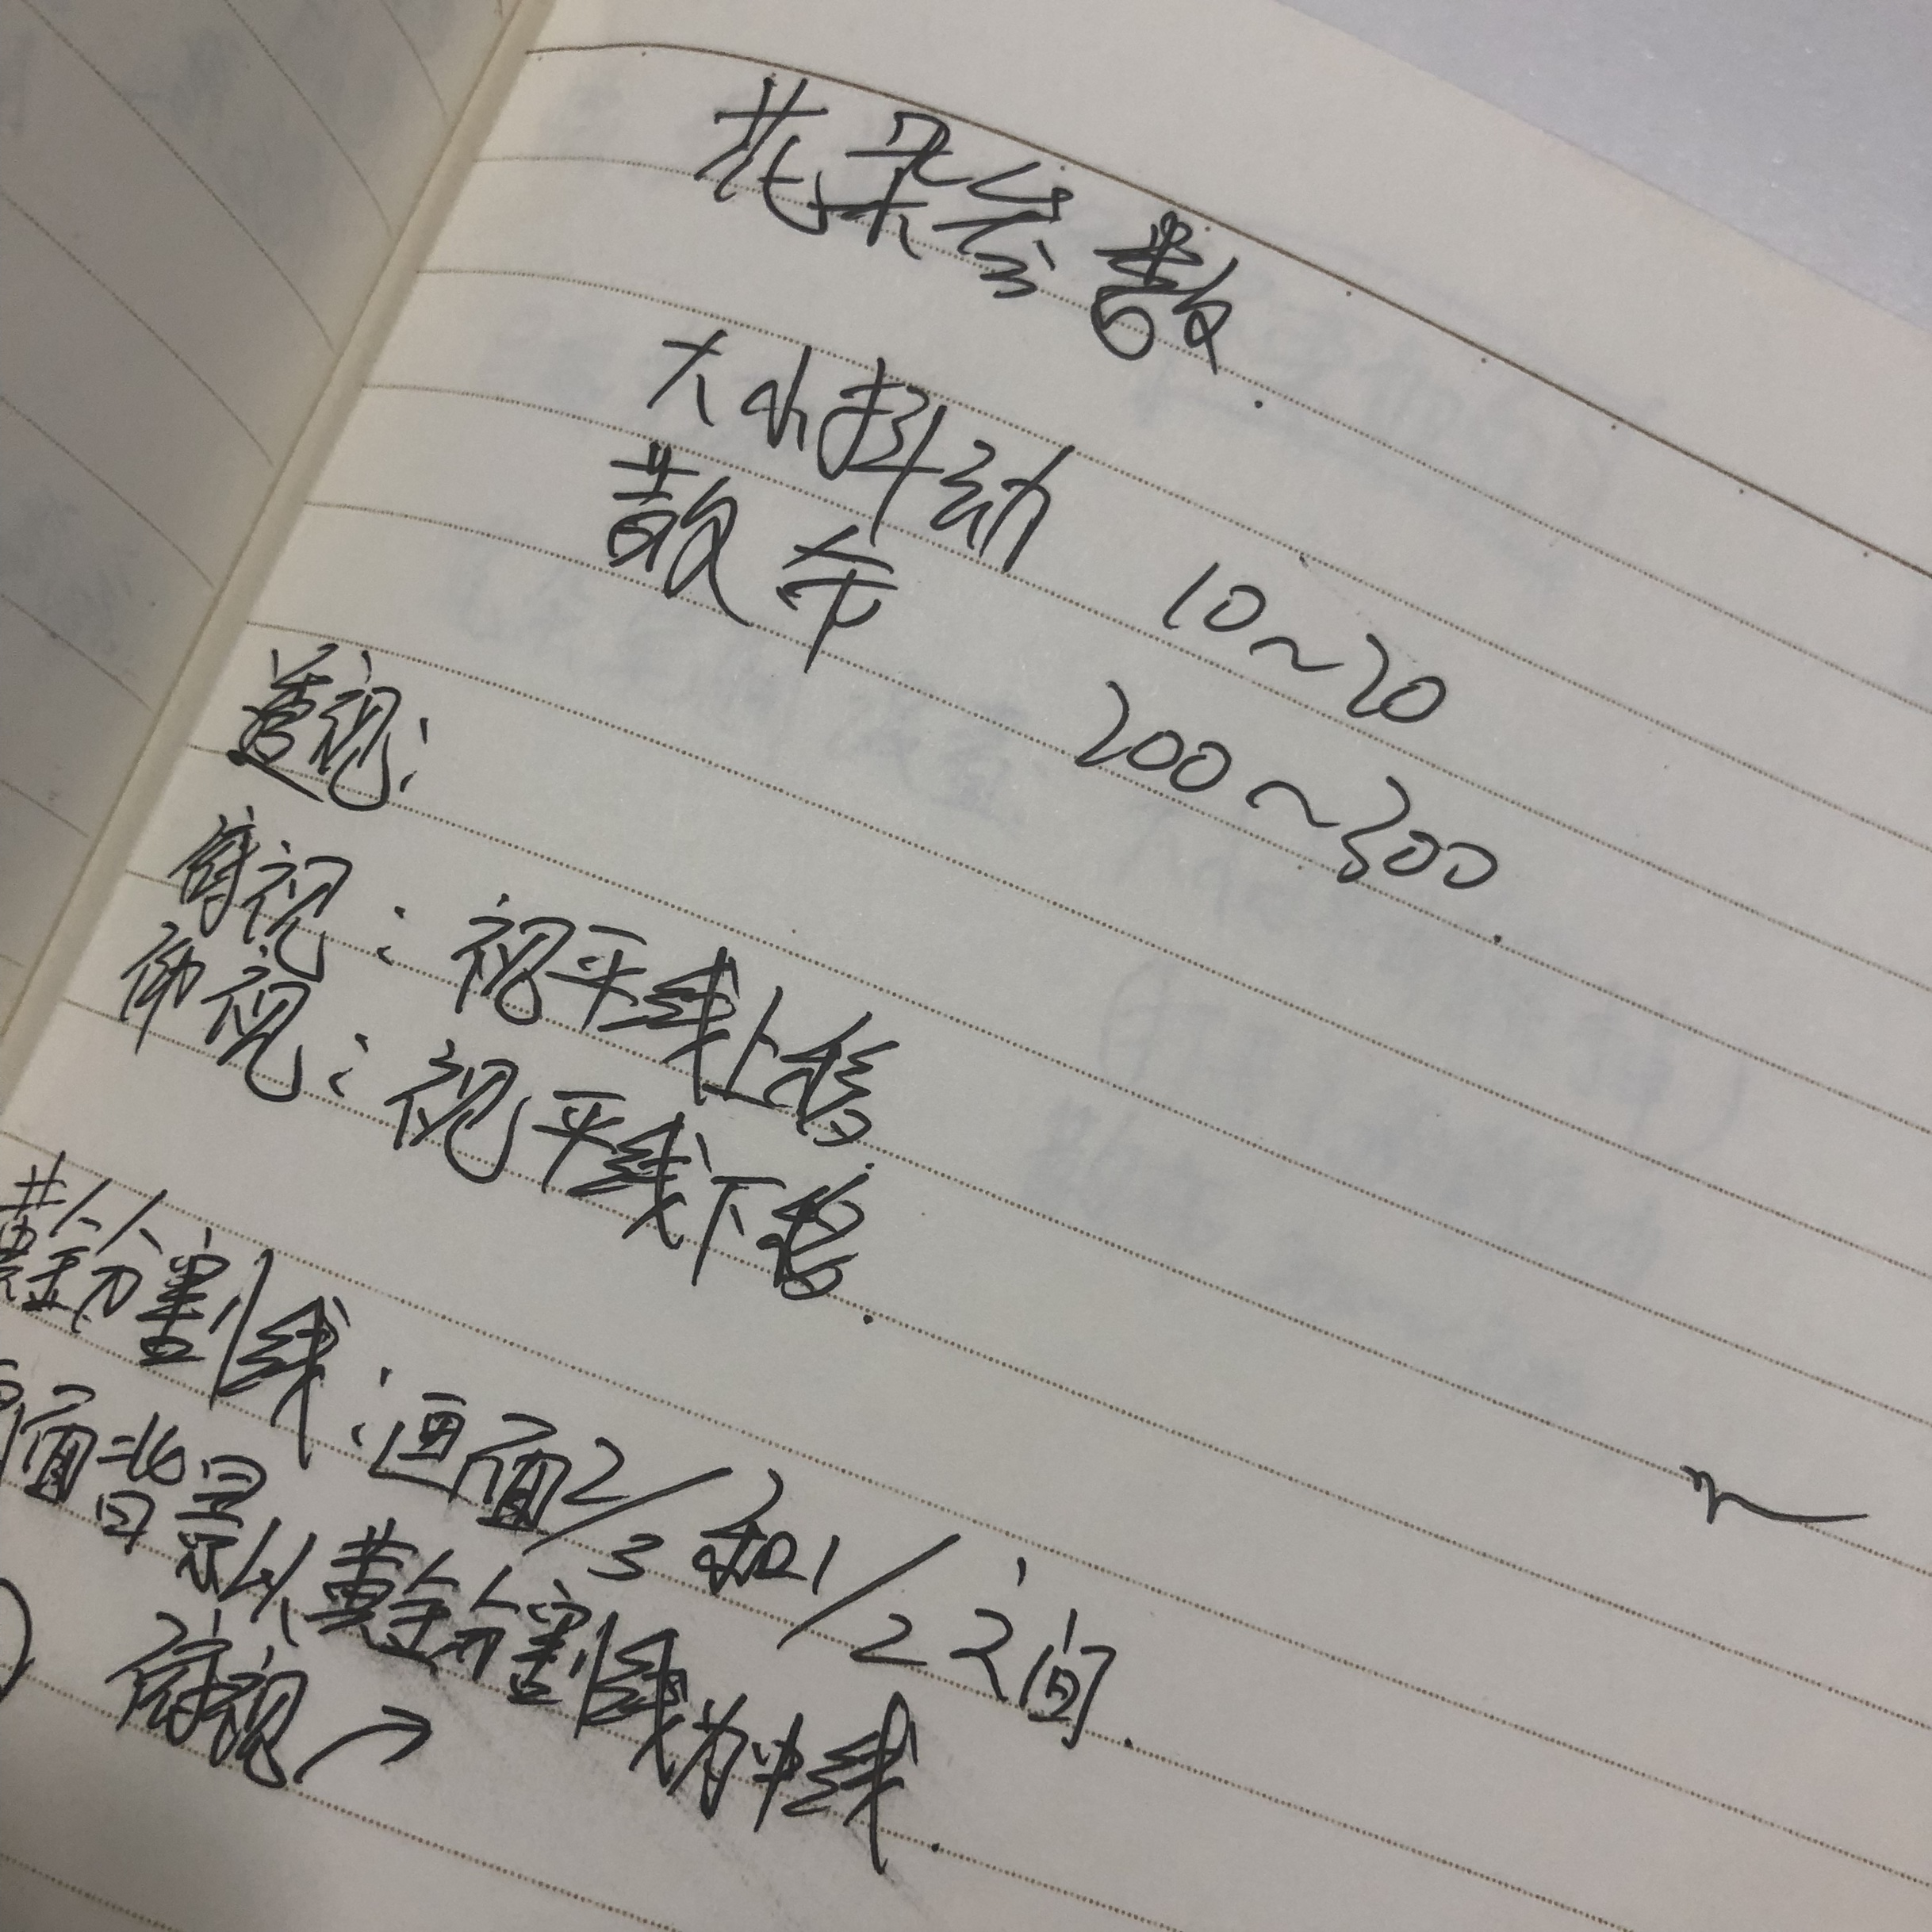 花朵参数.
大小抖动 10~20
散布 200~300.
透视:
俯视:视平线上移.
仰视:视平线下移.
黄金分割线:画面2/3和1/2之间.
画面背景以黄金分割线为中线.
俯视→